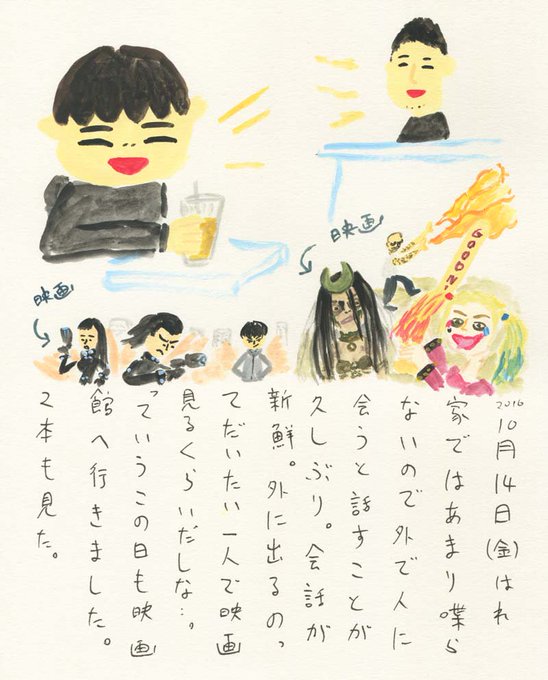 映画
GOODNI
映画
2016
10月14日(金)はれ
家ではあまり喋ら
ないので外で人に
会うと話すことが
久しぶり。会話が
新鮮。外に出るのっ
てだいたい一人で映画
見るくらいだしな…。
っていうこの日も映画
館へ行きました。
2本も見た。